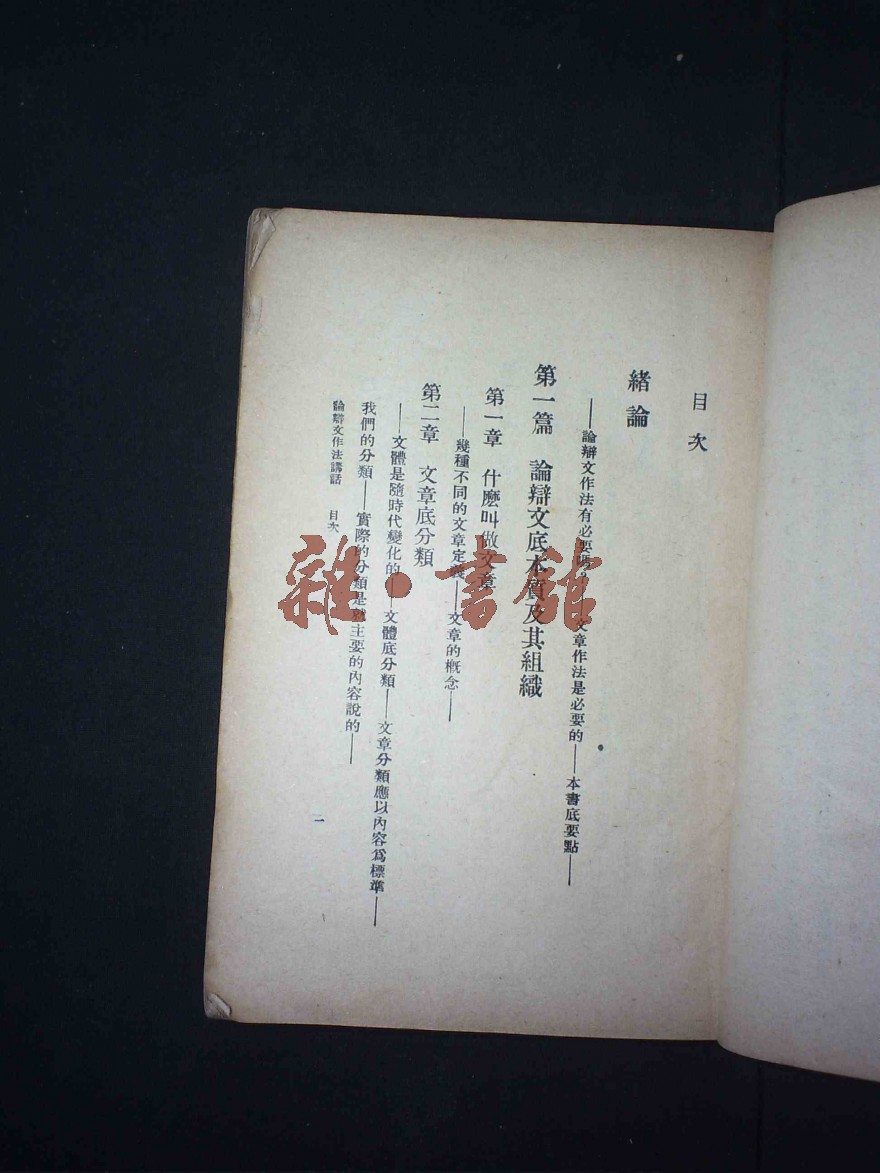 目次
緒論
——論辯文作法有必要嗎？——文章作法是必要的——本書底要點——
第一篇 論辯文底本質及其組織
第一章 什麼叫做文章
——幾種不同的文章定義——文章的概念——
第二章 文章底分類
——文體是隨時代變化的——文體底分類——文章分類應以內容爲標準——
我們的分類——實際的分類是就主要的內容說的——
論辯文作法講話 目次
一
雜·書館